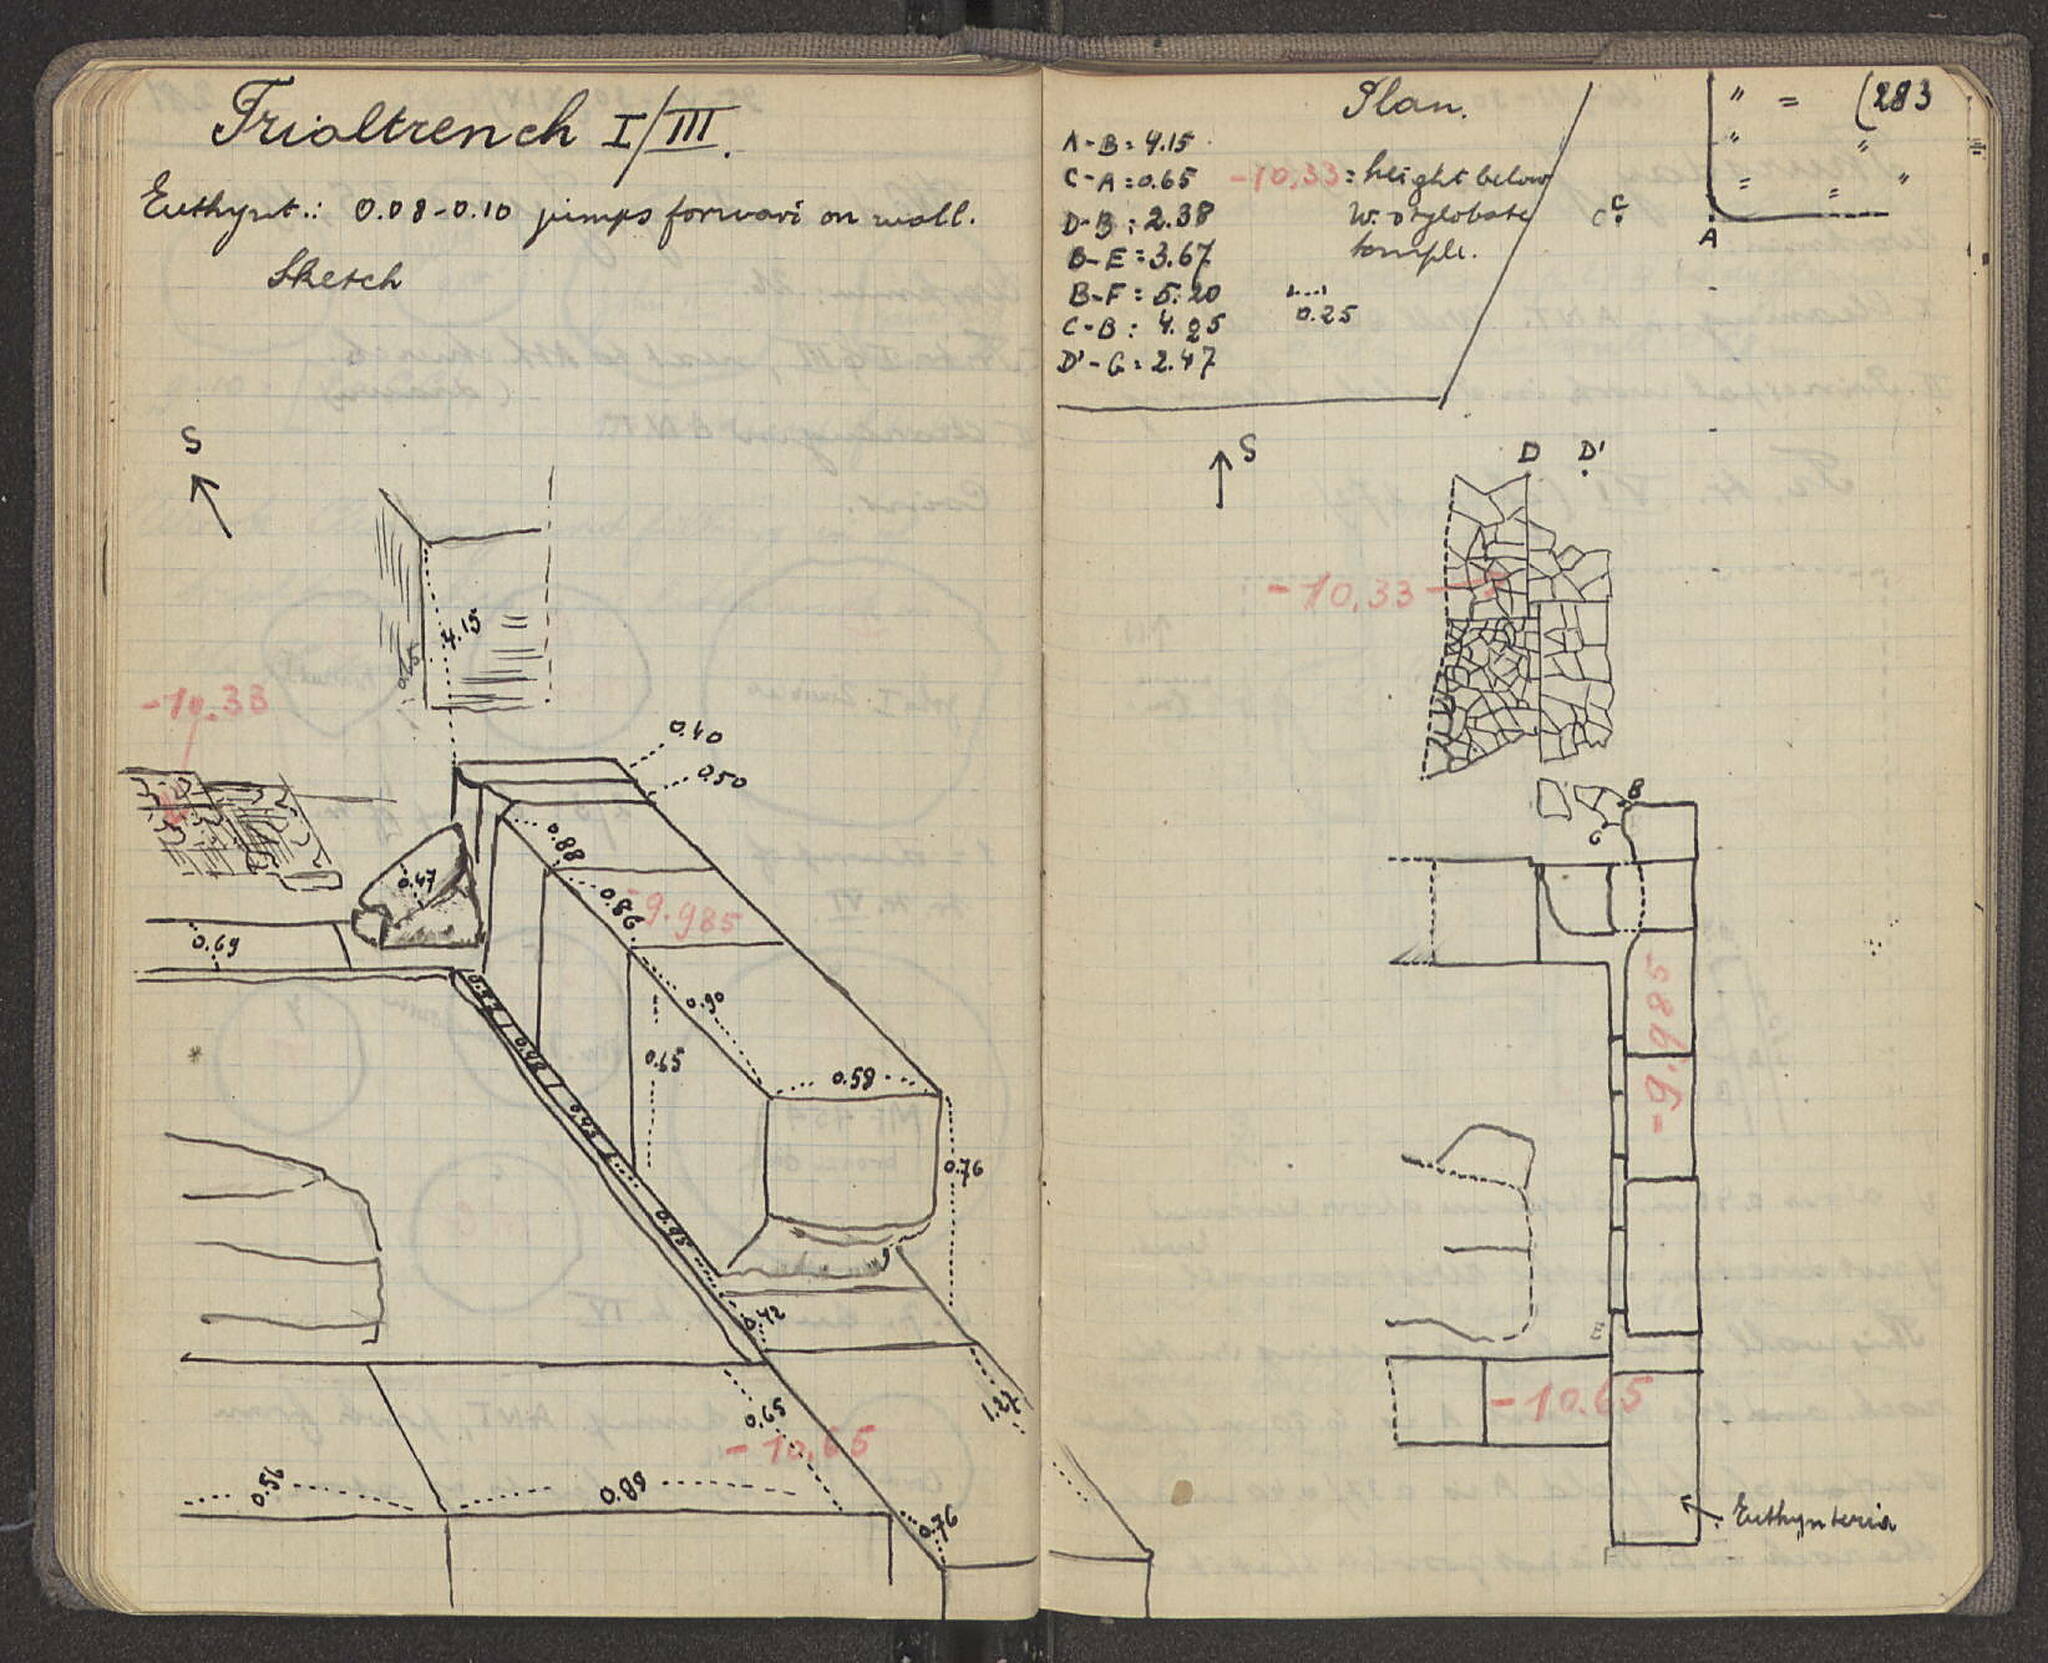 Trialtrench I/III.
Euthynt.: 0.08-0.10 jumps forward on wall.
Sketch
S
4.15
0.65
-10.33
0.40
0.50
0.88
0.47
0.86
-9.985
0.69
0.90
0.65
0.58
0.43
0.76
0.45
0.42
1.27
0.65
-10.65
0.56
0.88
0.76
Plan.
(283
" =
" "
= = "
A-B: 4.15
C-A: 0.65
D-B: 2.38
B-E: 3.67
B-F: 5.20
C-B: 4.25
D'-G: 2.47
-10.33 = height below
W. stylobate
temple.
0.25
C C
A
S
D D'
-10.33
B
G
-9.985
E
-10.65
Euthynteria
F